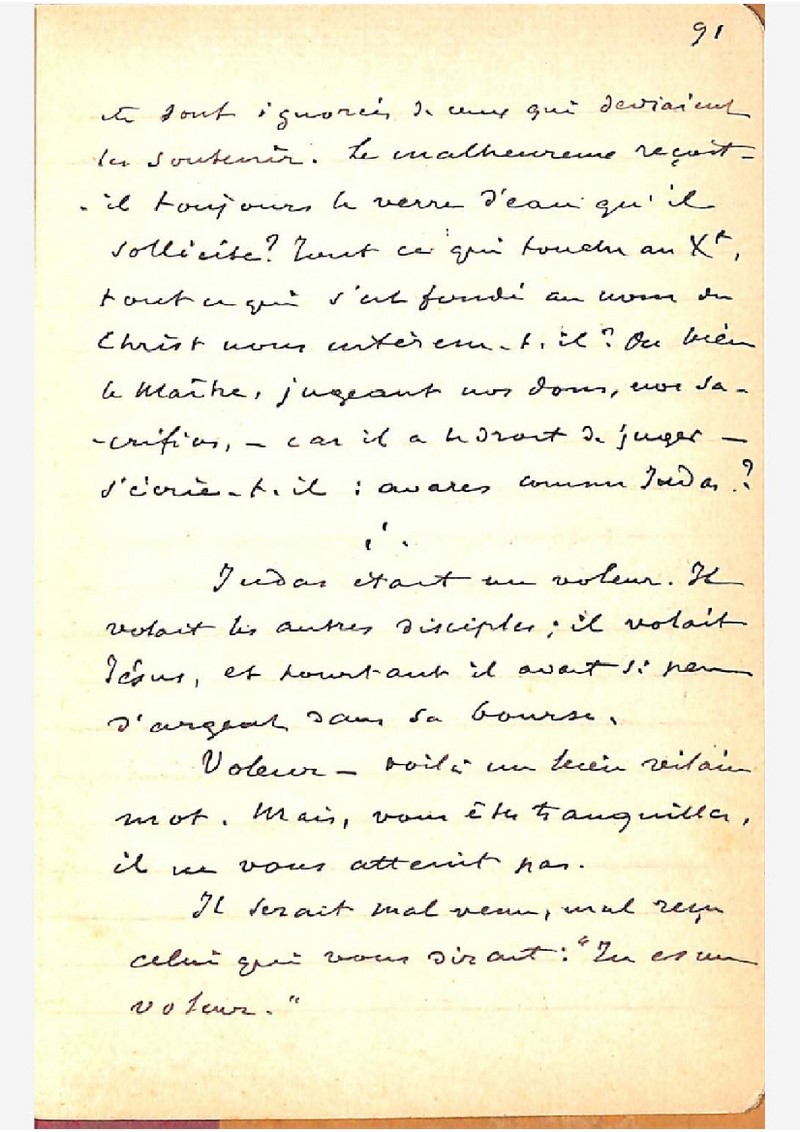 91
etc sont ignorées de ceux qui devraient
les soutenir. Le malheureux reçoit-
-il toujours le verre d'eau qu'il
sollicite? Tout ce qui touche au Xt,
tout ce qui s'est fondé au nom du
Christ nous intéresse-t-il? Ou bien
le Maître, jugeant nos dons, nos sa-
-crifices, – car il a le droit de juger –
s'écrie-t-il : avares comme Judas?
Judas était un voleur. Il
volait les autres disciples; il volait
Jésus, et pourtant il avait si peu
d'argent dans sa bourse.
Voleur – voilà un bien vilain
mot. Mais, vous êtes tranquilles,
il ne vous atteint pas.
Il serait mal venu, mal reçu
celui qui vous dirait : "Tu es un
voleur."